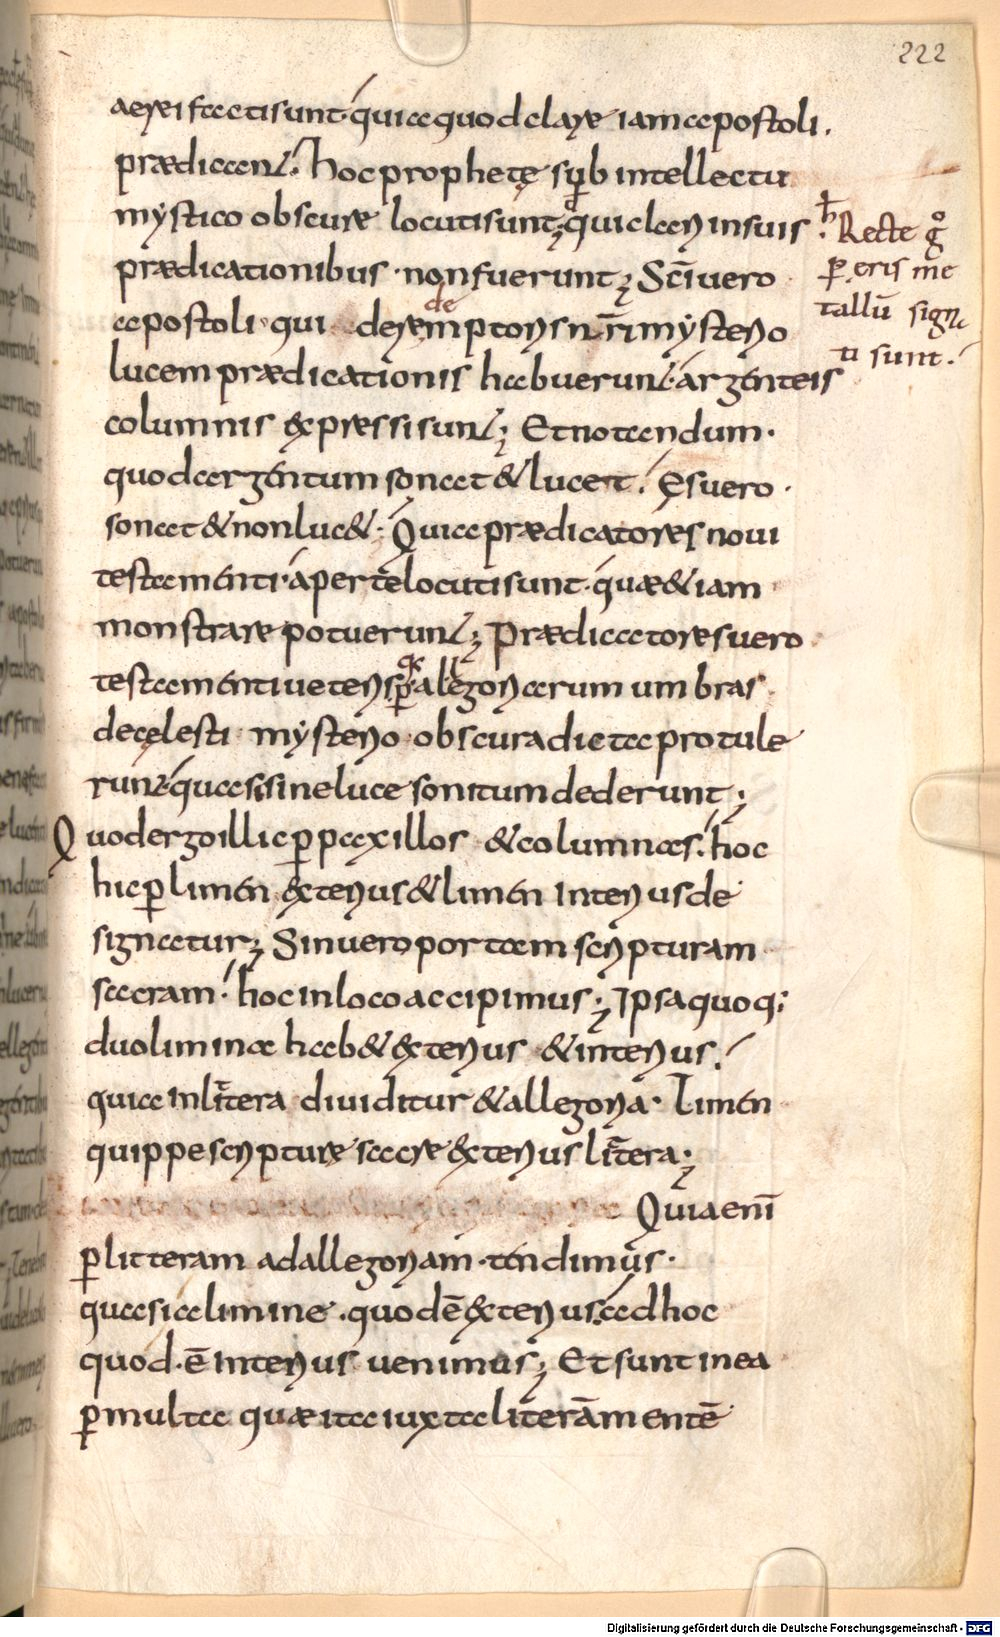 222
aerei facti sunt· quia quod clare iam apostoli.
prædicant· hoc prophetę sub intellectu
mystico obscure locuti sunt; qui clari in suis
prædicationibus · non fuerunt; Sc̄i vero
apostoli · qui de redemptoris nr̄i mysterio
lucem prædicationis habuerunt· argenteis
columnis expressi sunt; Et notandum·
quod argentum sonat & lucet· Ęs vero·
sonat & non luc&· Quia prædicatores novi
testamenti· aperte locuti sunt· quæ & iam
monstrare potuerunt; Prædicatores vero
testamenti veteris quia p̱ allegoriarum umbras
de cęlesti mysterio obscura dicta protule
runt· quasi sine luce sonitum dederunt;
Quod ergo illic p̱ paxillos & columnas· hoc
hic p̱ limen exterius & limen interius de
signatur; Sin vero portam scripturam
sacram· hoc in loco accipimus; Ipsa quoq;
duo limina hab& exterius & interius·
quia in lit̄tera dividitur & allegoria· Limen
quippe scripturæ sacræ exterius lit̄tera;
Quia eni̅
p̱ litteram ad allegoriam· tendimus·
quasi a limine · quod ē exterius· ad hoc
quod· ē interius venimus; Et sunt in ea
p̱multa quæ ita iuxta lit̄tera̅ mente̅
Recte g̊
p̱ eris me
tallu̅ signa
ti sunt·
Digitalisierung gefördert durch die Deutsche Forschungsgemeinschaft - DFG